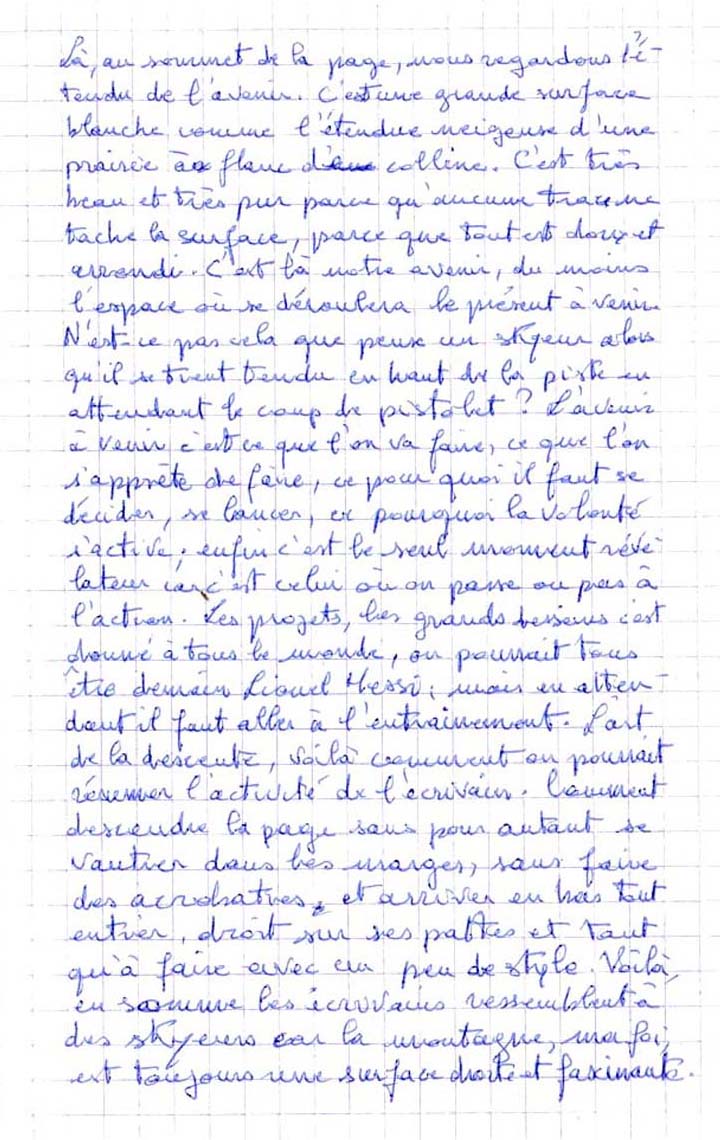 Là, au sommet de la page, nous regardons l'é-
tendu de l'avenir. C'est une grande surface
blanche comme l'étendue neigeuse d'une
prairie à flanc d'une colline. C'est très
beau et très pur parce qu'aucune trace ne
tache la surface, parce que tout est doux et
arrondi. C'est là notre avenir, du moins
l'espace où se déroulera le présent à venir.
N'est-ce pas cela que pense un skyeur alors
qu'il se tient tendu en haut de la piste en
attendant le coup de pistolet ? L'avenir
à venir c'est ce que l'on va faire, ce que l'on
s'apprête de faire, ce pour quoi il faut se
décider, se lancer, ce pourquoi la volonté
s'active ; enfin c'est le seul moment révé-
lateur car c'est celui où on passe ou pas à
l'action. Les projets, les grands desseins c'est
donné à tous le monde, on pourrait tous
être demain Lionel Messi ; mais en atten-
dant il faut aller à l'entrainement. L'art
de la descente, voilà comment on pourrait
résumer l'activité de l'écrivain. Comment
descendre la page sans pour autant se
vautrer dans les marges, sans faire
des acrobaties, et arriver en bas tout
entier, droit sur ses pattes et tant
qu'à faire avec un peu de style. Voilà,
en somme les écrivains ressemblent à
des skyeurs car la montagne, ma foi,
est toujours une surface droite et fascinante.